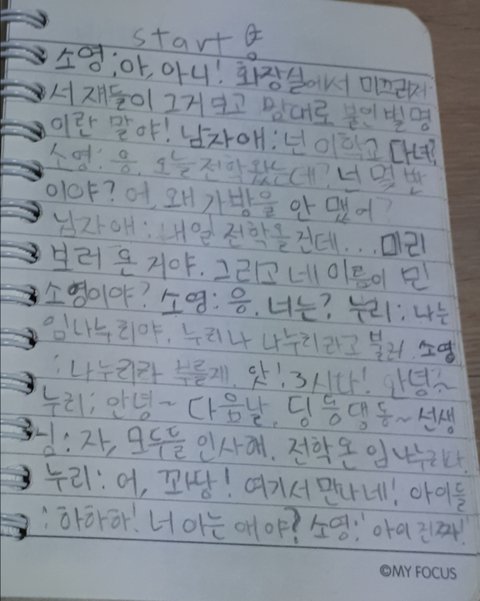 start
소영:아, 아니! 화장실에서 미끄러져
서 쟤들이 그거 보고 맘대로 붙인 별명
이란 말야! 남자애: 넌 이 학교 다녀?
소영: 응. 오늘 전학 왔는데? 넌 몇 반
이야? 어, 왜 가방을 안 맸어?
남자애: 내일 전학올건데... 미리
보러 온 거야. 그리고 네 이름이 민
소영이야? 소영: 응. 너는? 누리: 나는
임나누리야. 누리나 나누리라고 불러. 소영
: 나누리라 부를게. 앗! 3시다! 안녕~
누리: 안녕~ 다음날. 딩동댕동~ 선생
님: 자, 모두들 인사해. 전학 온 임나누리다.
누리: 어, 꽈당! 여기서 만나네! 아이들
: 하하하! 너 아는 애야? 소영: 아이 진짜!
©MY FOCUS